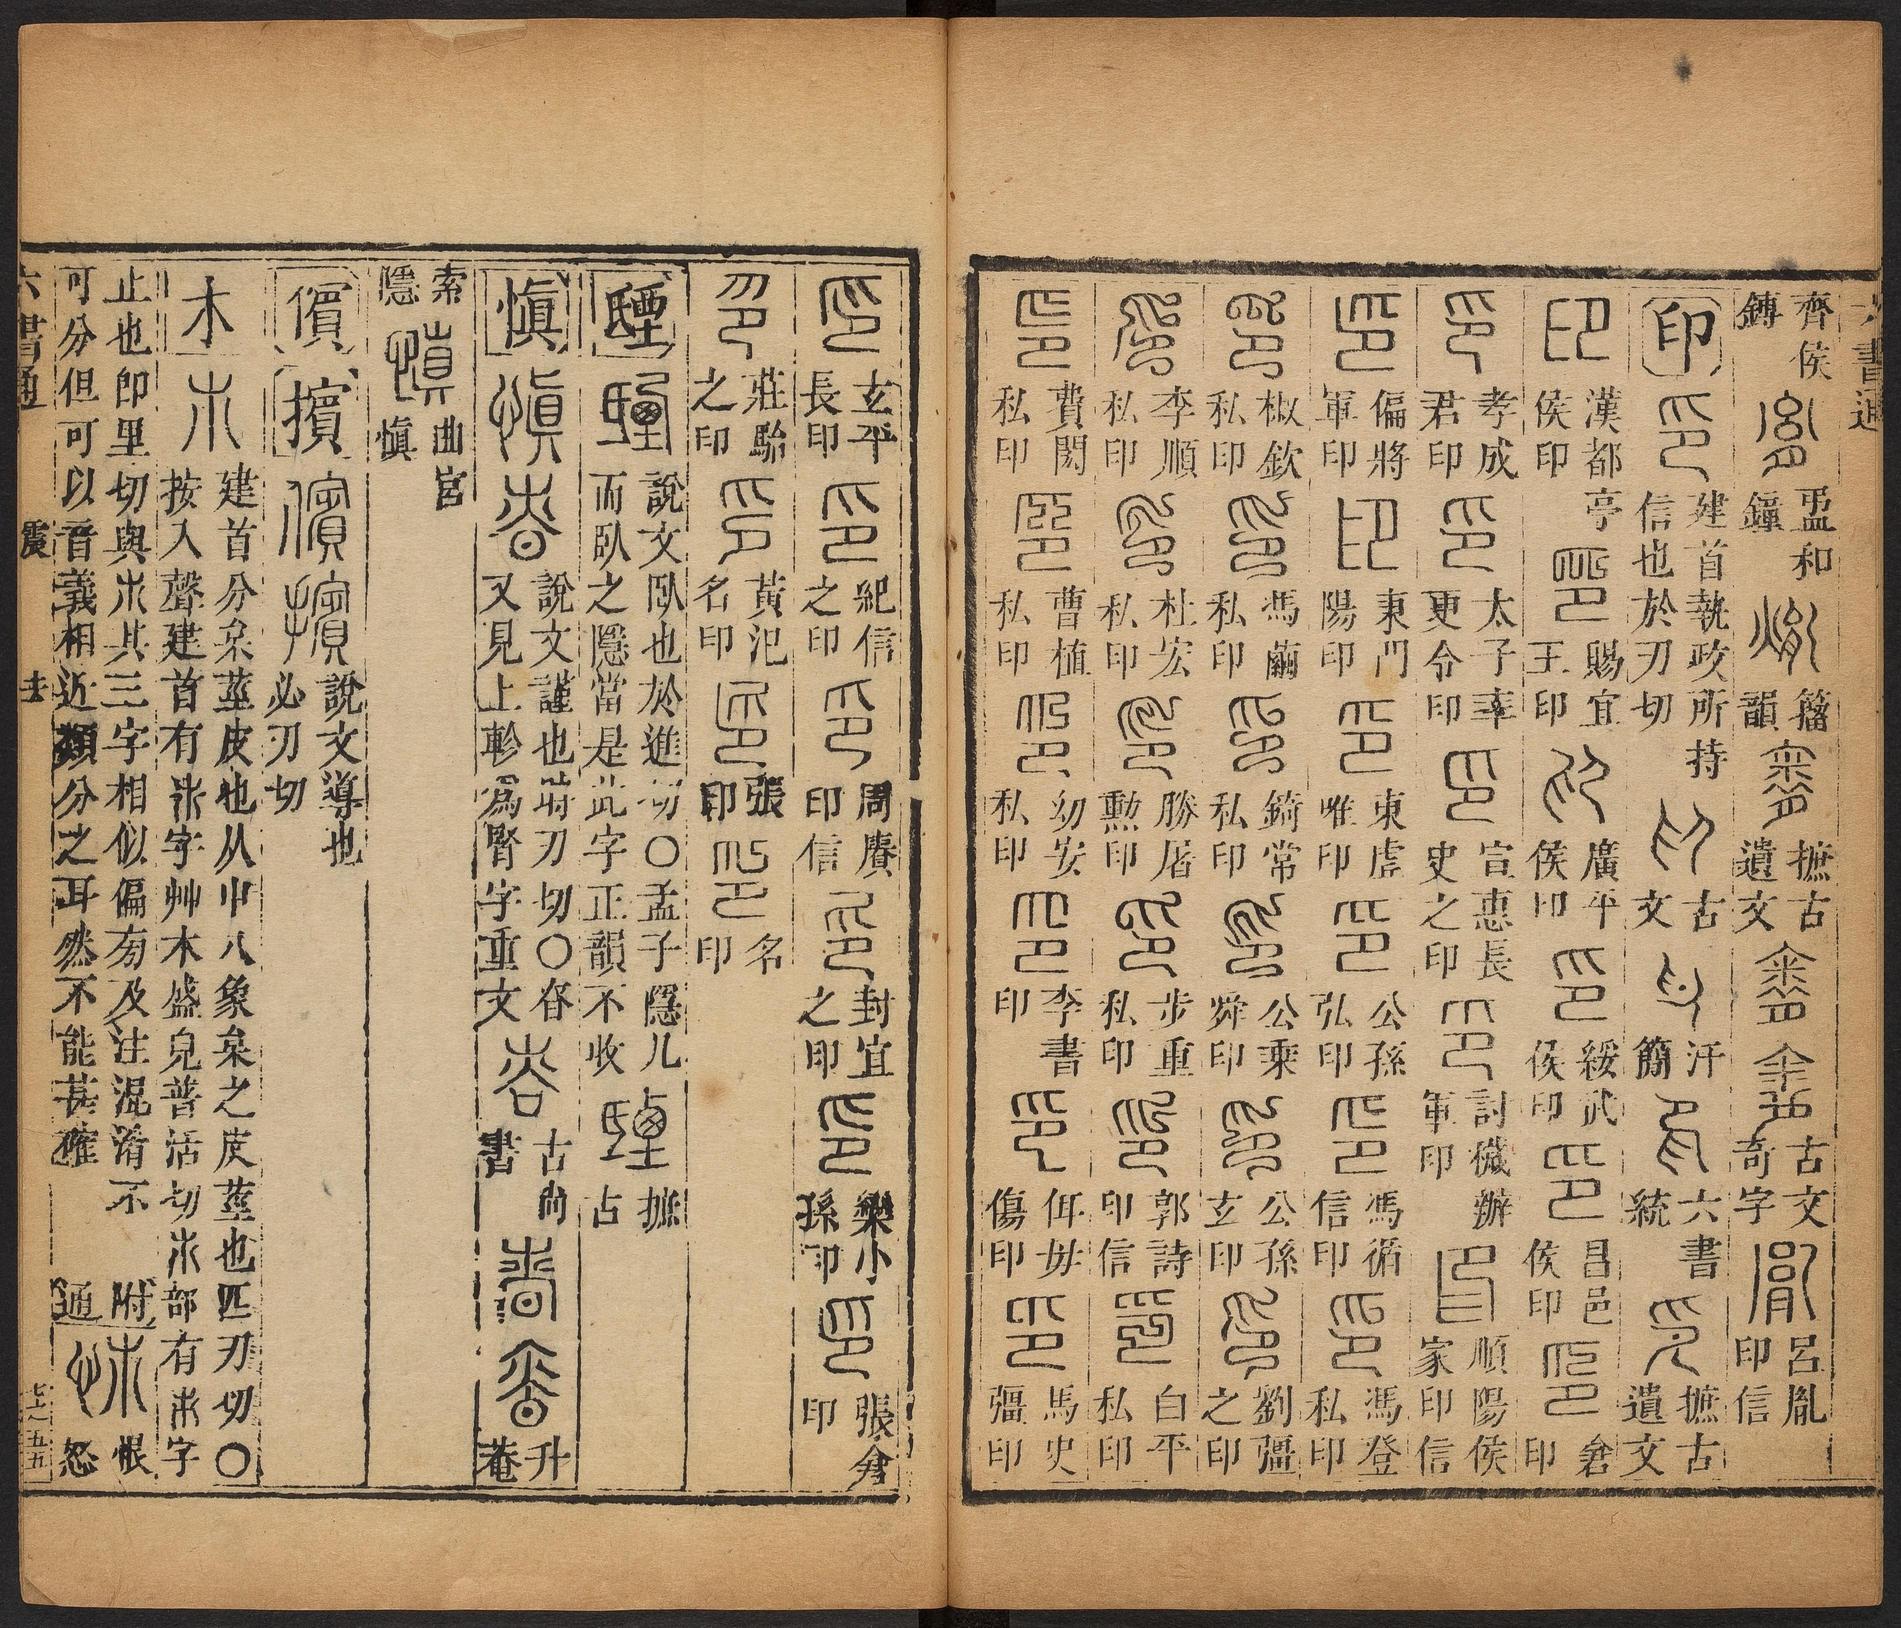 六書通
齊侯鎛 盄和鐘 籀韻 摭古遺文 古文奇字 呂胤印信
印 建首執政所持信也於刃切 古文 汗簡 六書統 摭古遺文
漢都亭侯印 賜宜王印 廣平侯印 綏武侯印 昌邑侯印
孝成君印 太子率更令印 宣惠長史之印 討穢辦軍印 順陽侯家印信
偏將軍印 東門陽印 東虛唯印 公孫弘印 馮循信印 馮登私印
椒欽私印 馮繭私印 錡常私印 公乘舜印 公孫玄印 劉彊之印
李順私印 杜宏私印 勝屠勲印 步重私印 郭詩印信 白平私印
費閎私印 曹植私印 幼安私印 李書印 傷印 馬史彊印
玄平長印 紀信之印 周賡印信 封宜之印 樂小孫印 張翕印
莊駘之印 黃氾名印 張印 名印
說文臥也於進切〇孟子隱几而臥之隱當是此字正韻不收 摭古
愼 說文謹也時刃切〇昚又見上軫爲腎字重文 古尚書 升菴
索隱 曲官愼
儐 擯 說文導也必刃切
木 建首分枲莖皮也从屮八象枲之皮莖也匹刃切〇按入聲建首有 字艸木盛皃普活切 部有 字
止也卽里切與 其三字相似偏旁及注混淆不
可分但可以音義相近類分之耳然不能甚確 附通 恨 怒
六書通 震 去 七上 五五